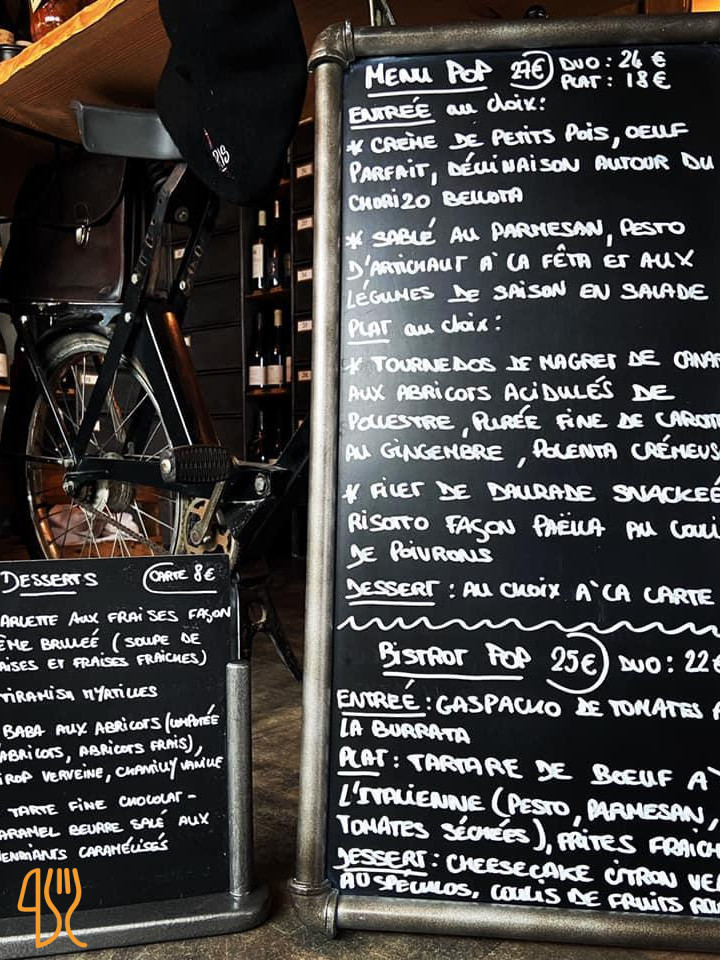 MENU POP 27€ DUO : 24 €
PLAT : 18€
ENTRÉE au choix :
* CRÈME DE PETITS POIS, OEUF
PARFAIT, DÉCLINAISON AUTOUR DU
CHORIZO BELLOTA
* SABLÉ AU PARMESAN, PESTO
D'ARTICHAUT A LA FÊTA ET AUX
LÉGUMES DE SAISON EN SALADE
PLAT au choix :
* TOURNEDOS DE MAGRET DE CANAR
AUX ABRICOTS ACIDULÉS DE
, PURÉE FINE DE CAROTT
AU GINGEMBRE, POLENTA CRÉMEUS
* FILET DE DAURADE SNACKEÉ
RISOTTO FAÇON PAËLLA AU COULI
DE POIVRONS
DESSERT : AU CHOIX A LA CARTE
BISTROT POP 25€ DUO : 22€
ENTREÉ : GASPACHO DE TOMATES A
LA BURRATA
PLAT : TARTARE DE BOEUF A
L'ITALIENNE (PESTO, PARMESAN,
TOMATES SÉCHÉES), FRITES FRAICH
DESSERT : CHEESECAKE CITRON VE
AU SPÉCULOS, COULIS DE FRUITS RO
DESSERTS CARTE 8€
ARLETTE AUX FRAISES FAÇON
ÈME BRULEÉ (SOUPE DE
AISES ET FRAISES FRAICHES)
TIRAMISU MYRTILLES
BABA AUX ABRICOTS (COMPOTÉE
ABRICOTS, ABRICOTS FRAIS),
IROP VERVEINE, CHANTILLY VANILLE
TARTE FINE CHOCOLAT -
ARAMEL BEURRE SALÉ AUX
ENDIANTS CARAMÉLISÉS